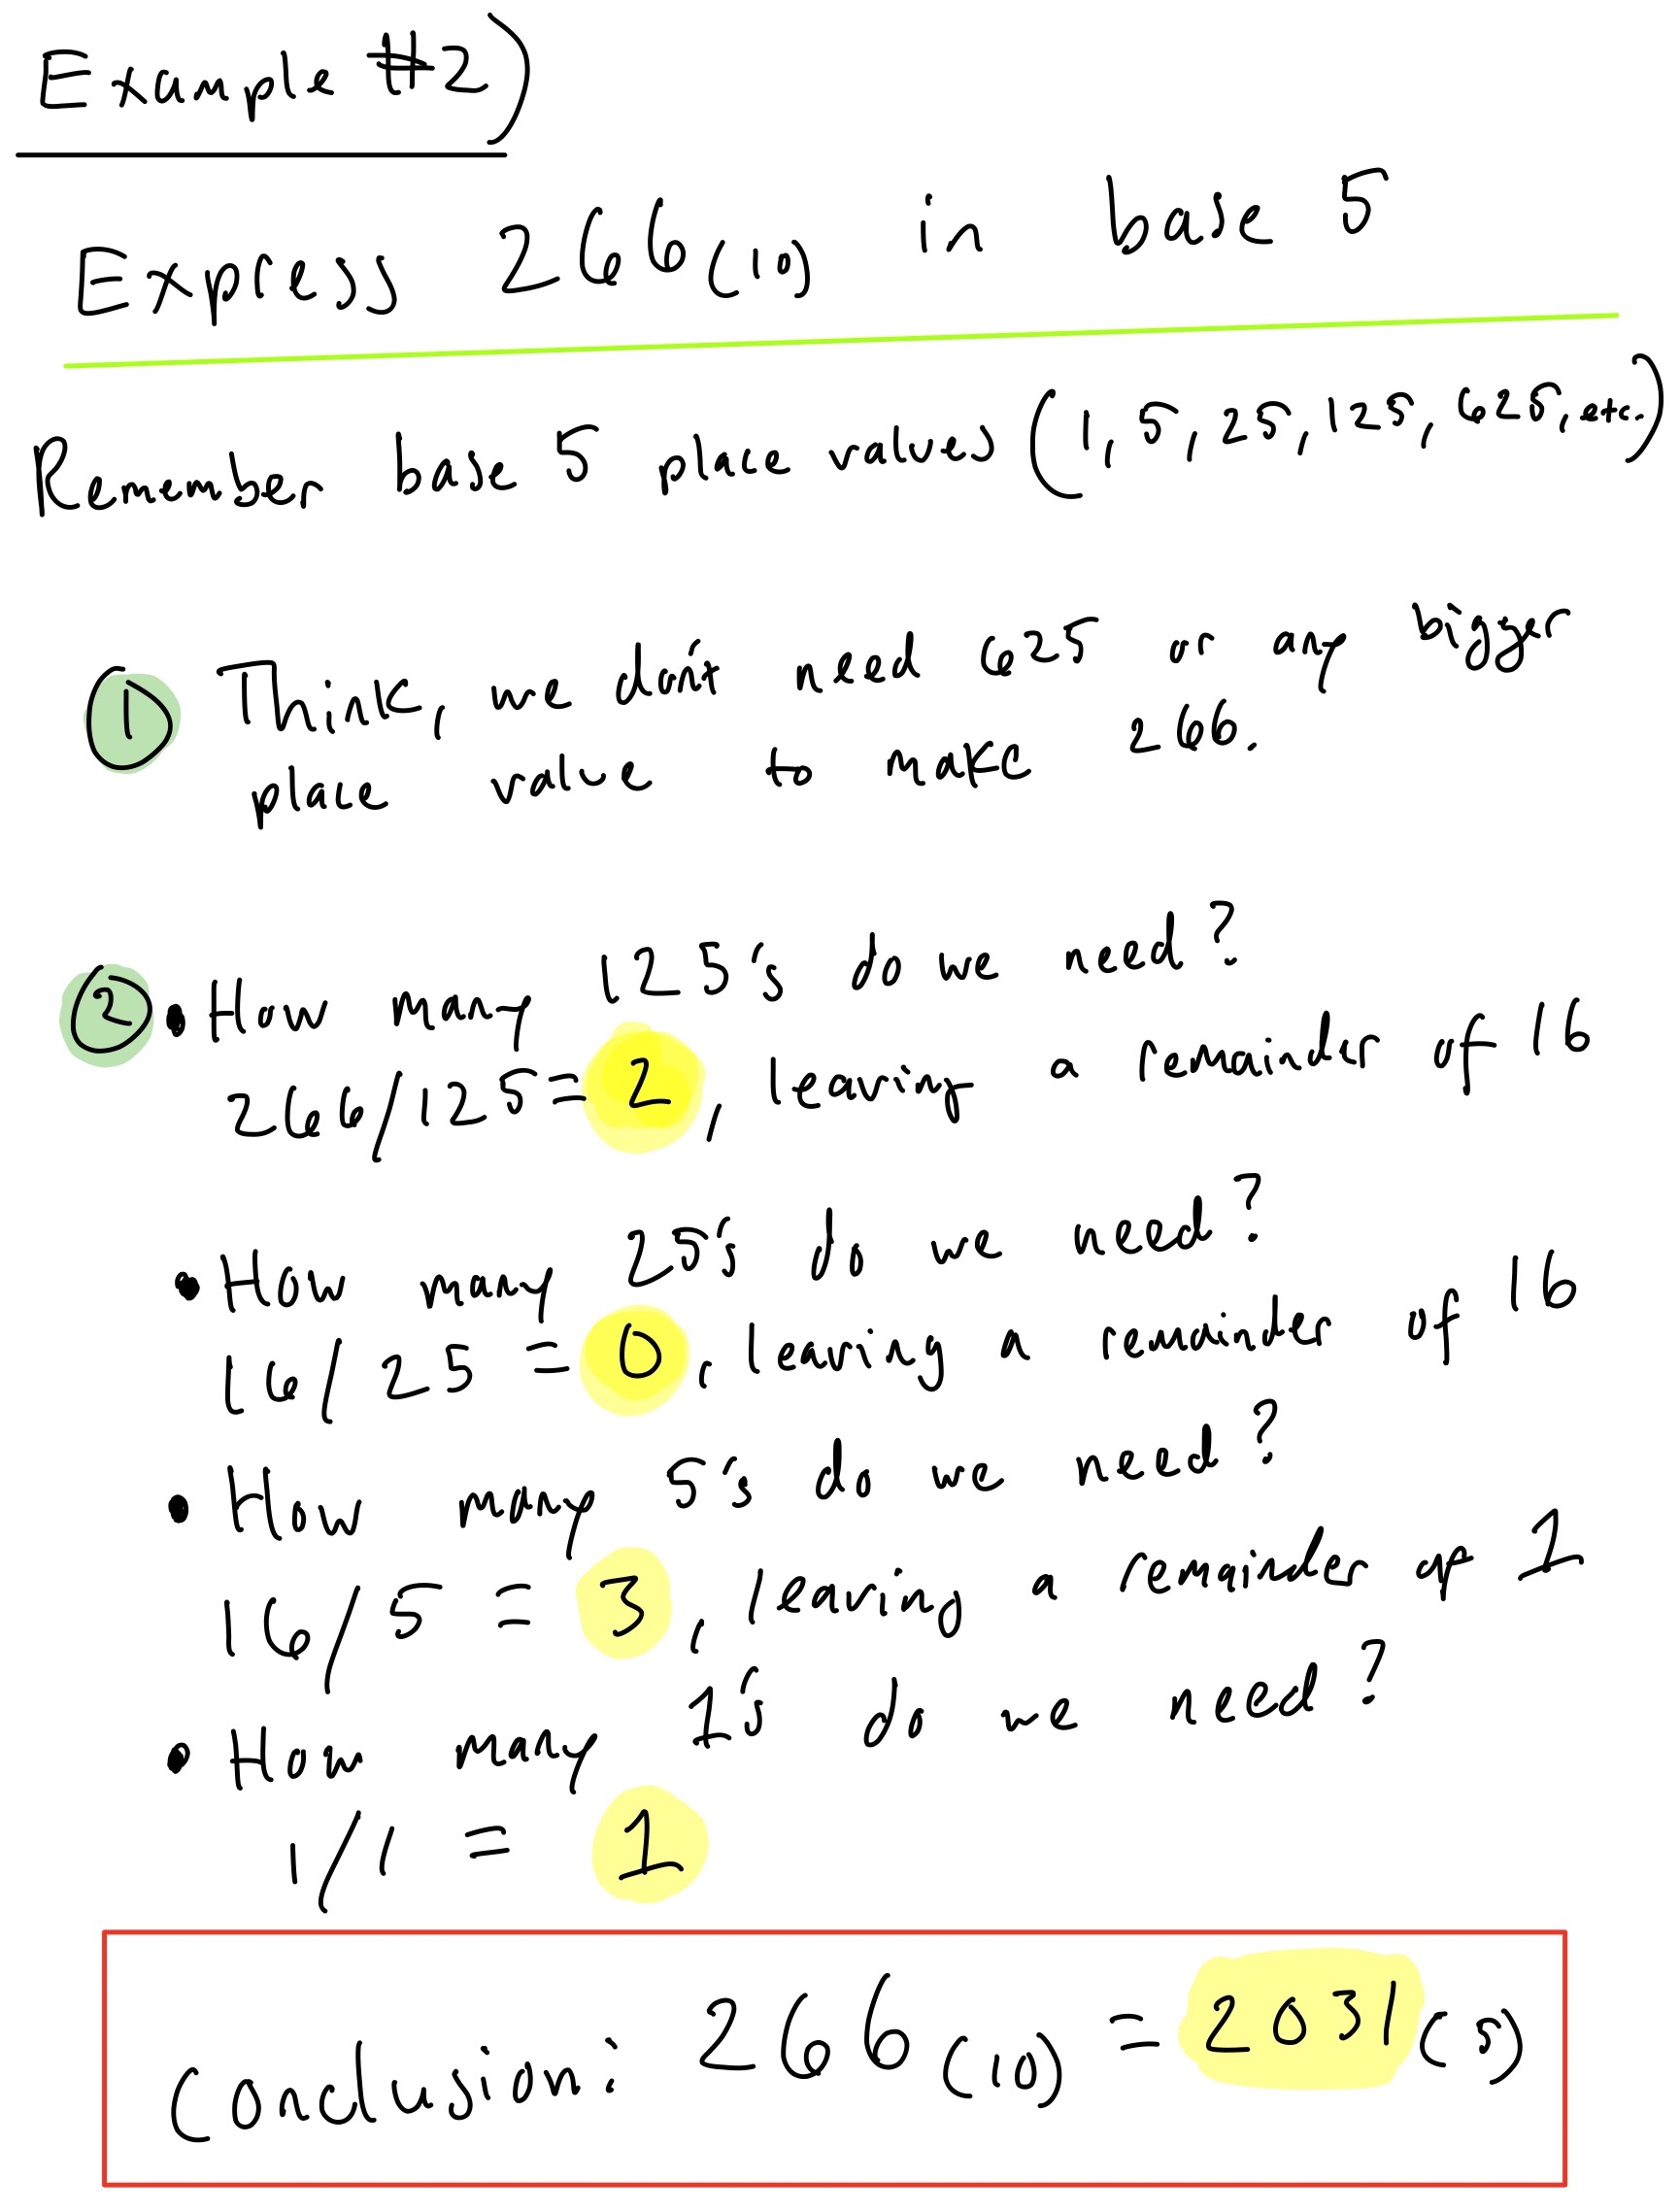 Example #2)
Express 266(10) in base 5
Remember base 5 place values (1, 5, 25, 125, 625, etc.)
① Think, we don't need 625 or any bigger
place value to make 266.
② • How many 125's do we need?
266/125 = 2, leaving a remainder of 16
• How many 25's do we need?
16/25 = 0, leaving a remainder of 16
• How many 5's do we need?
16/5 = 3, leaving a remainder of 1
• How many 1's do we need?
1/1 = 1
Conclusion: 266(10) = 2031(5)